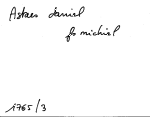 Astaes daniel
fs michiel
1765/3